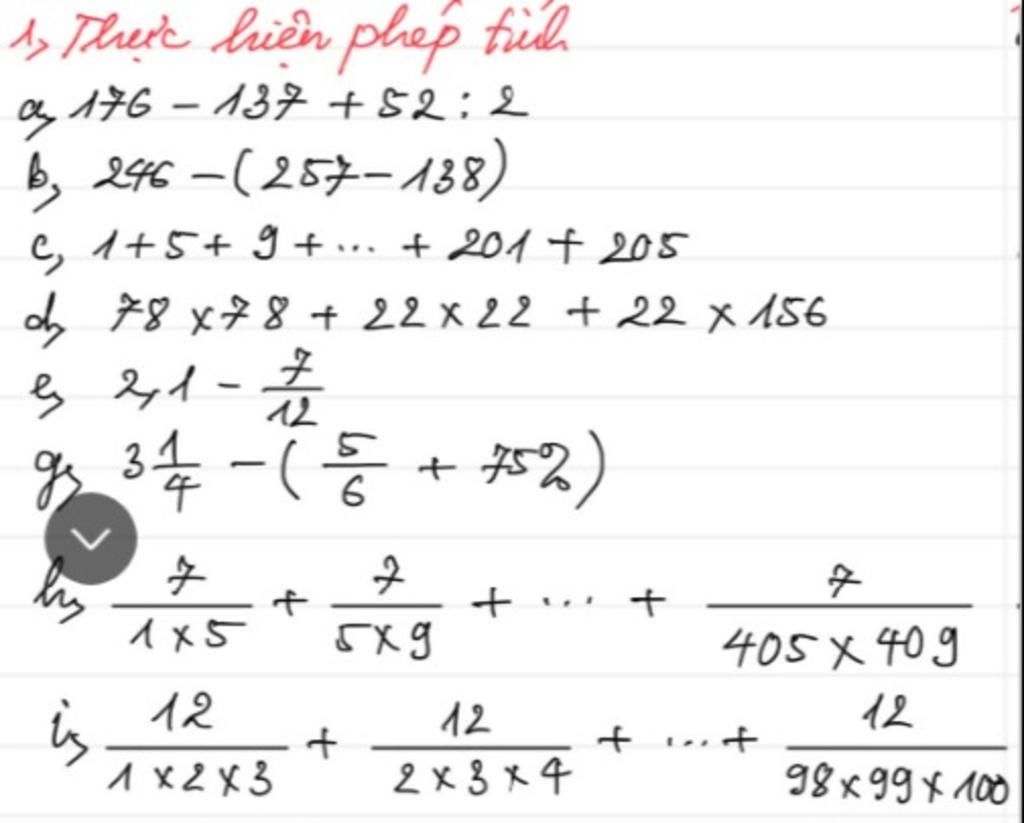 1, Thực hiện phép tính
a, 176 - 137 + 52 : 2
b, 246 - (257 - 138)
c, 1 + 5 + 9 + ... + 201 + 205
d, 78 x 78 + 22 x 22 + 22 x 156
e, 2,1 - 7/12
g, 3 1/4 - ( 5/6 + 75% )
h, 7/(1 x 5) + 7/(5 x 9) + ... + 7/(405 x 409)
i, 12/(1 x 2 x 3) + 12/(2 x 3 x 4) + ... + 12/(98 x 99 x 100)